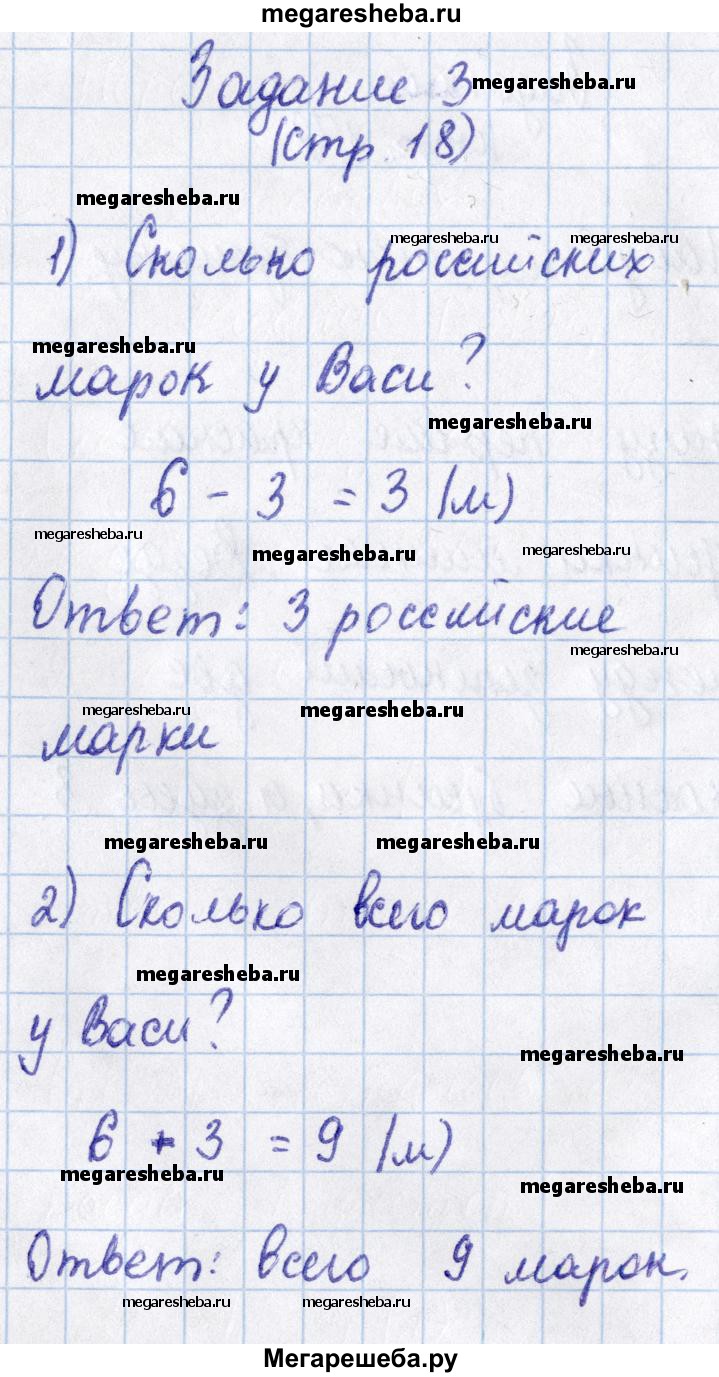 megaresheba.ru
Задание 3 megaresheba.ru
(стр. 18)
megaresheba.ru
megaresheba.ru megaresheba.ru
1) Сколько российских
megaresheba.ru
марок у Васи?
megaresheba.ru
6 - 3 = 3 (м)
megaresheba.ru megaresheba.ru megaresheba.ru
Ответ: 3 российские
megaresheba.ru
megaresheba.ru megaresheba.ru
марки
megaresheba.ru megaresheba.ru
2) Сколько всего марок
megaresheba.ru
у Васи?
megaresheba.ru
6 + 3 = 9 (м)
megaresheba.ru megaresheba.ru
Ответ: всего 9 марок.
megaresheba.ru megaresheba.ru
Мегарешеба.ру